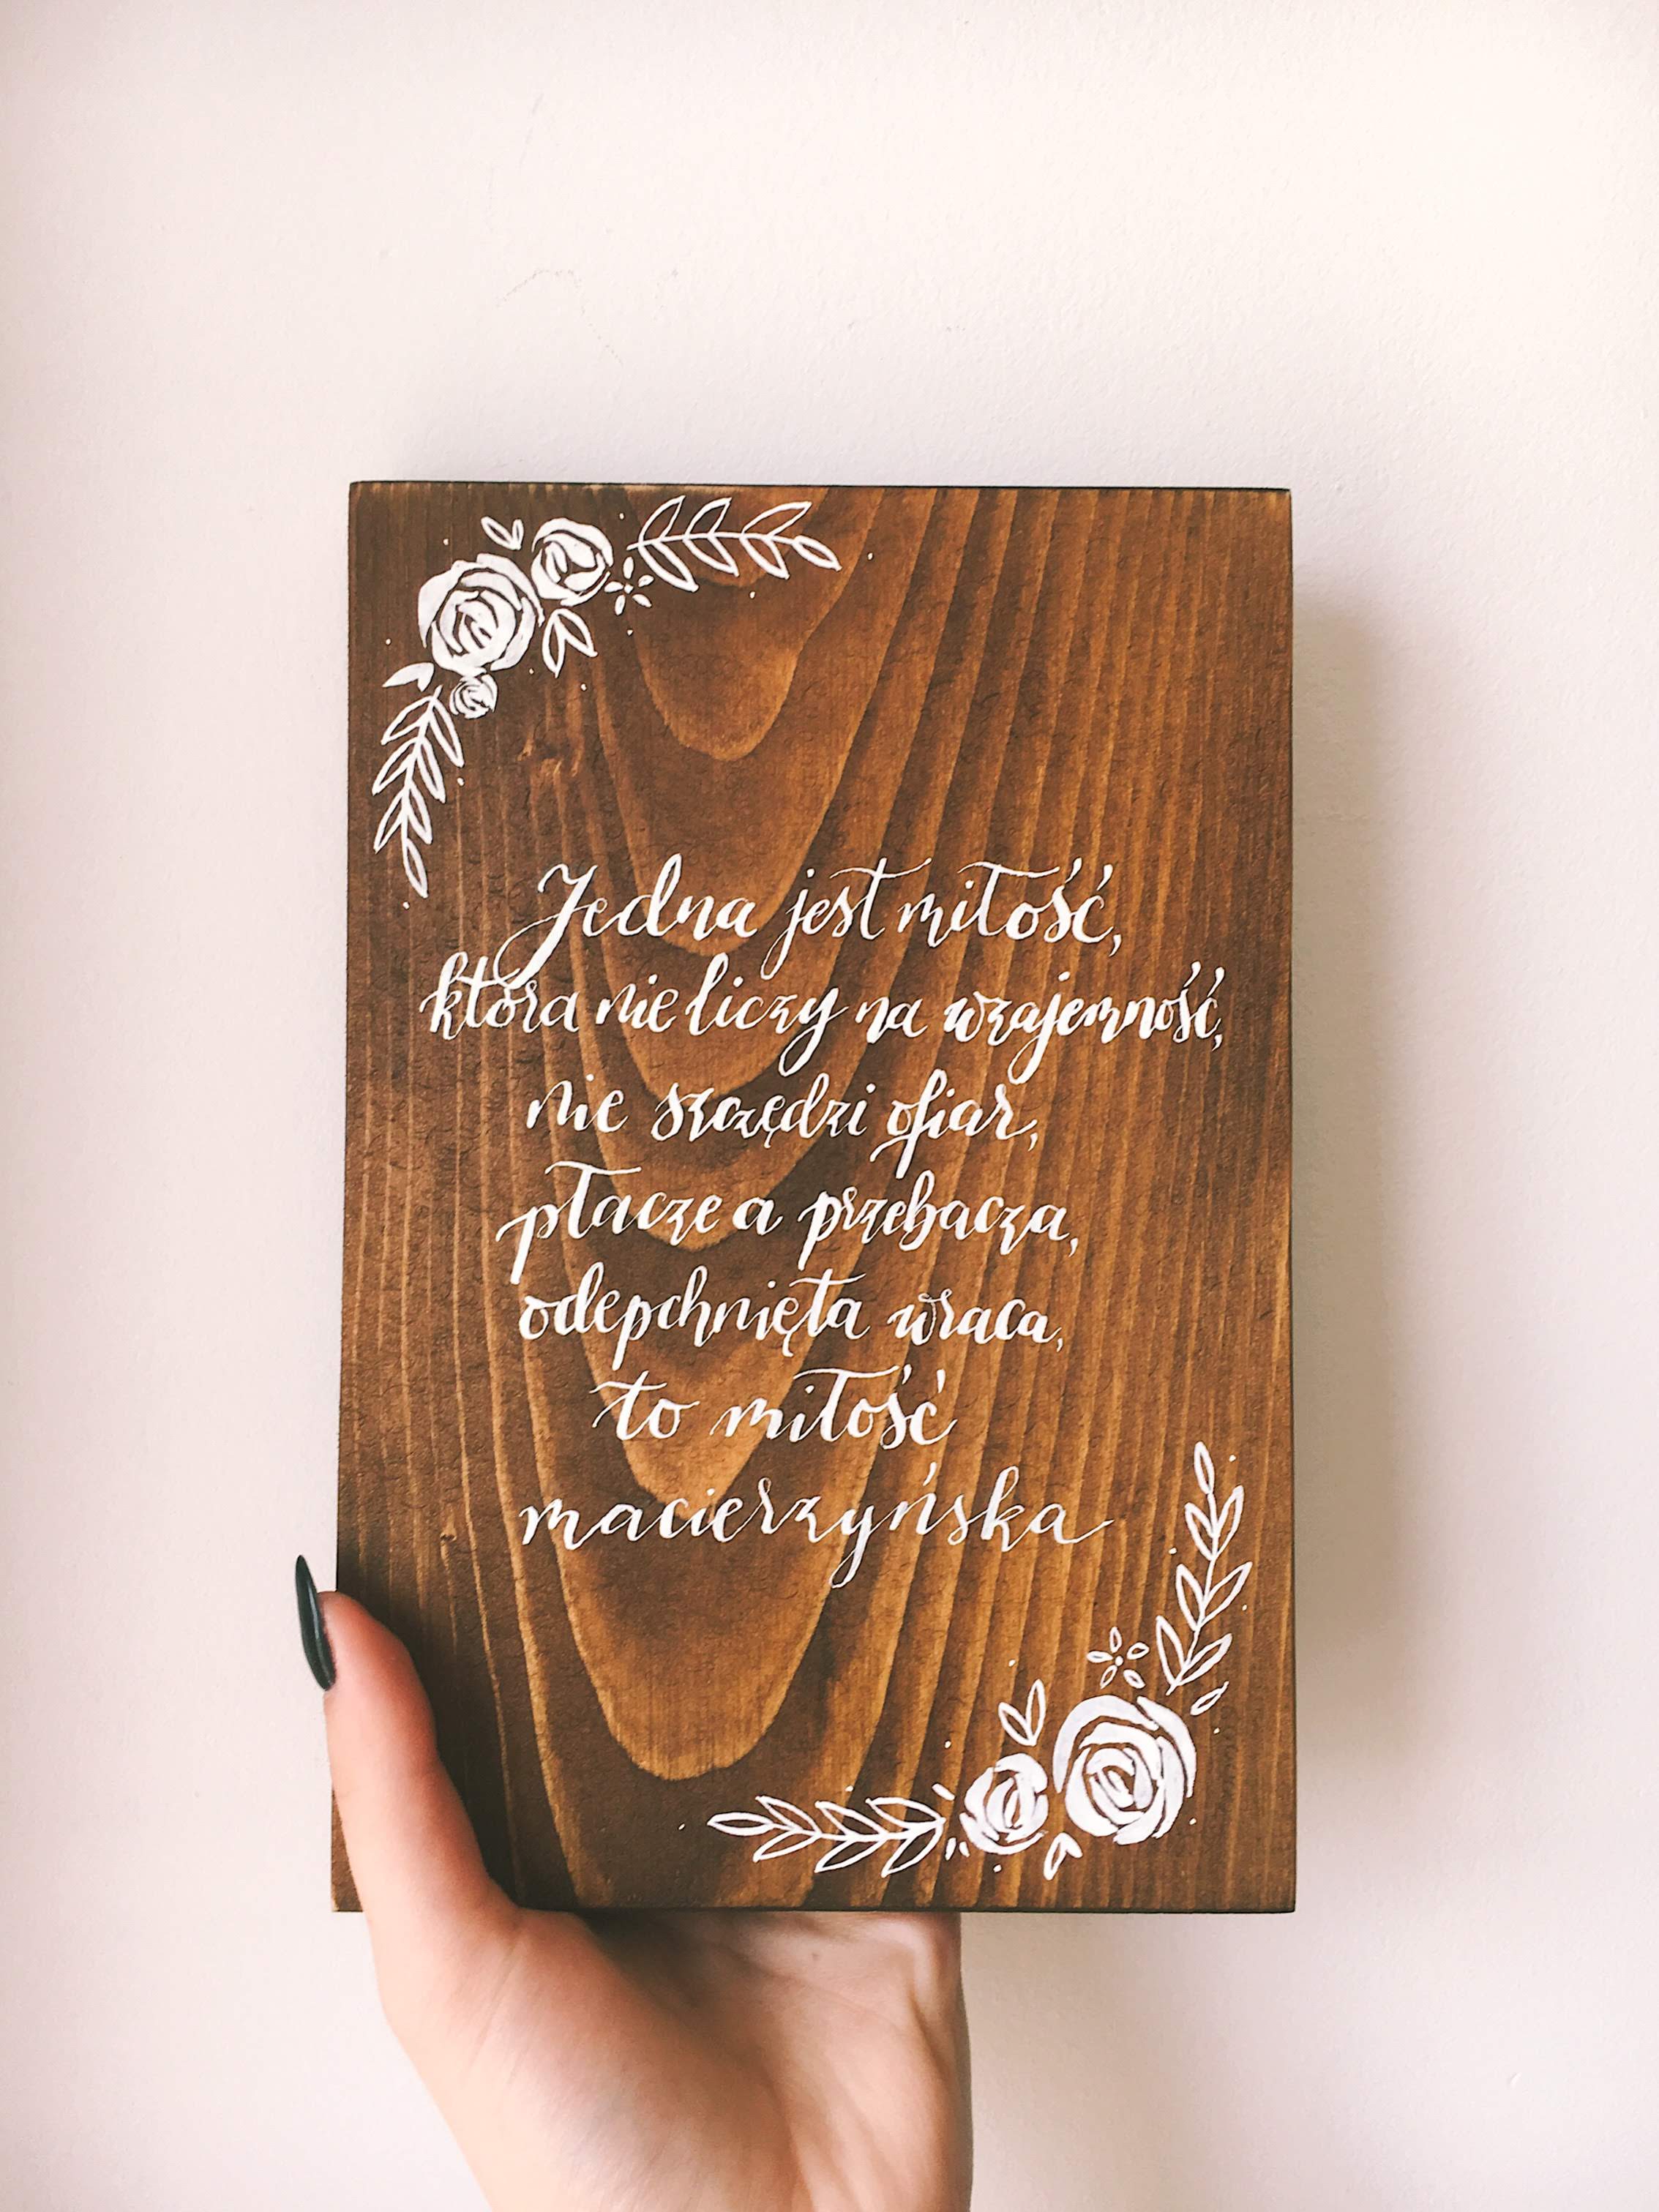 Jedna jest miłość,
która nie liczy na wzajemność,
nie szczędzi ofiar,
płacze a przebacza,
odepchnięta wraca,
to miłość
macierzyńska